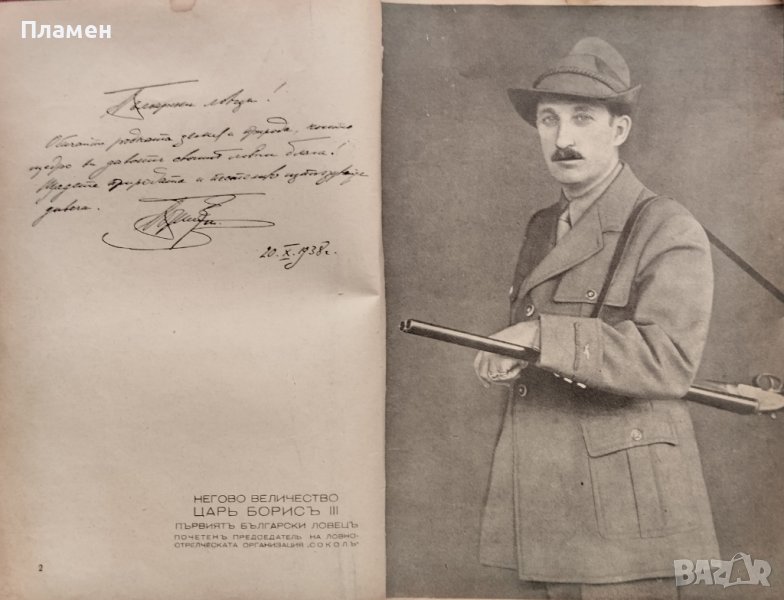 Пламен
Български ловци!
Обичайте родната земя и природа, които
щедро ви дават своите ловни блага!
Щадете природата и
дивеча.
20. X. 1938 г.
НЕГОВО ВЕЛИЧЕСТВО
ЦАРЬ БОРИСЪ III
ПЪРВИЯТЪ БЪЛГАРСКИ ЛОВЕЦЪ
ПОЧЕТЕНЪ ПРЕДСЕДАТЕЛЬ НА ЛОВНО-
СТРЕЛЧЕСКАТА ОРГАНИЗАЦИЯ „СОКОЛЪ“
2
BAZAR